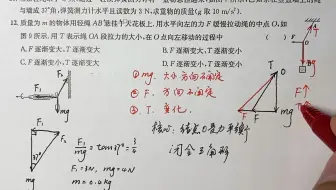 与墙成37°角,弹簧测力计水平且读数为3 N,求重物的质量(g取10 m/s²).
12.质量为m的物体用轻绳AB悬挂于天花板上,用水平向左的力F缓慢拉动绳的中点O,如
图9所示,用T表示绳OA段拉力的大小,在O点向左移动的过程中
A.F逐渐变大,T逐渐变大
B.F逐渐变大,T逐渐变小
C.F逐渐变小,T逐渐变大
D.F逐渐变小,T逐渐变小
① mg. 大小方向不固定
② F. 方向不固定
③ T. 变化.
核心:结点O受力平衡
闭合三角形
F₁/mg = tan37° = 3/4
F₁=3N, mg=4N
m=0.4kg
37°
mg
T
O
F
F
F↑